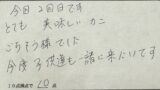 今回2回目です
とても 美味しい カニ
ごちそう様でした
今度子供達も一諸に来たいです
10点満点で 10 点